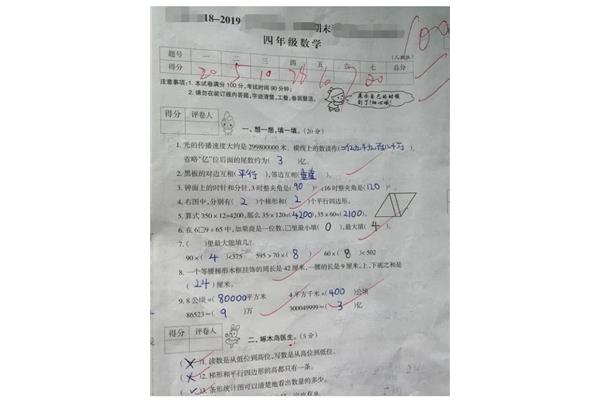 18-2019 期末
四年级数学
(人教版)
100
题号 一 二 三 四 五 六 七 总分
得分 20 5 10 28
注意事项:1. 本试卷满分100分,考试时间90分钟;
2. 请勿在装订线内答题,字迹清楚,工整,卷面整洁。
展示自己的时候到了!细心哦!
得分 评卷人
一、想一想,填一填。(20分)
1. 光的传播速度大约是299800000米。横线上的数读作(二亿九千九百八十万),
省略“亿”位后面的尾数约为( 3 )亿。
2. 黑板的对边互相(平行),邻边互相(垂直)。
3. 钟面上的时针和分针,3时整夹角是(90)°,16时整夹角是(120)°。
4. 右图中,分别有( 2 )个梯形和( 2 )个平行四边形。
5. 算式350×12=4200,那么35×120=(4200),35×60=(2100)。
6. 在6□9÷65中,如果商是一位数,□里最小填( 0 ),最大填( 4 )。
7. ( )里最大能填几?
90×( 4 )<375 595>70×( 8 ) 60×( 8 )<502
8. 一个等腰梯形木框挂饰的周长是42厘米,一腰的长是9厘米,上、下底之和是
( 24 )厘米。
9. 8公顷=(80000)平方米 4平方千米=(400)公顷
86523≈( 9 )万 300049999≈( 3 )亿
得分 评卷人
二、啄木鸟医生。(5分)
(×)1. 读数是从低位到高位,写数是从高位到低位。
(×)2. 梯形和平行四边形的高都只有一条。
(✓)3. 条形统计图可以清楚地看出数量的多少。